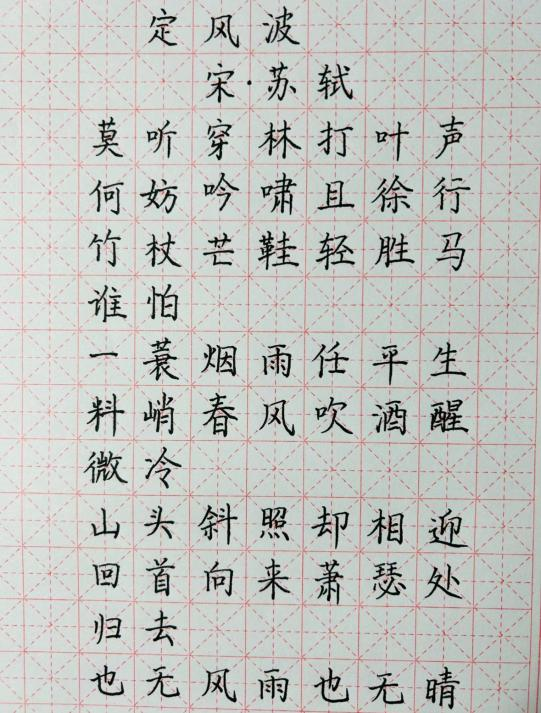 定风波
宋·苏轼
莫听穿林打叶声
何妨吟啸且徐行
竹杖芒鞋轻胜马
谁怕
一蓑烟雨任平生
料峭春风吹酒醒
微冷
山头斜照却相迎
回首向来萧瑟处
归去
也无风雨也无晴